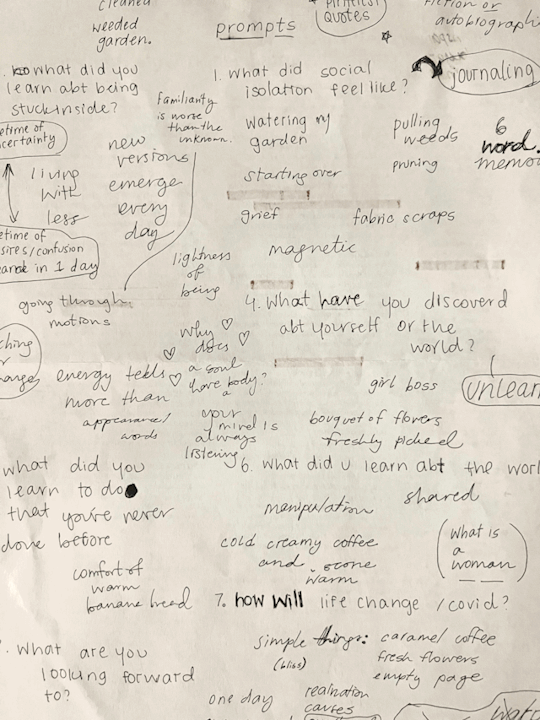 cleaned
weeded
garden.
prompts
QUOTES
fiction or
what did you
learn abt being
stuck inside?
familiarity
is worse
than the
unknown.
new
versions
emerge
every
day
living
with
less
in 1 day
going through
motions
lightness
of
being
why
does
a soul
have a body?
your
mind is
always
listening
energy tells
more than
appearance/
words
what did you
learn to do
that you're never
done before
comfort of
warm
banana bread
what are you
looking forward
to?
1. What did social
isolation feel like?
journaling
watering my
garden
pulling
weeds
pruning
6
word
starting over
grief
fabric scraps
magnetic
4. What have you discoverd
abt yourself or the
world?
girl boss
bouquet of flowers
freshly picked
6. what did u learn abt the
shared
manipulation
cold creamy coffee
and scone
warm
(what is
a
woman)
7. how will life change /covid?
simple things: caramel coffee
(bliss) fresh flowers
empty page
one day
realization
causes